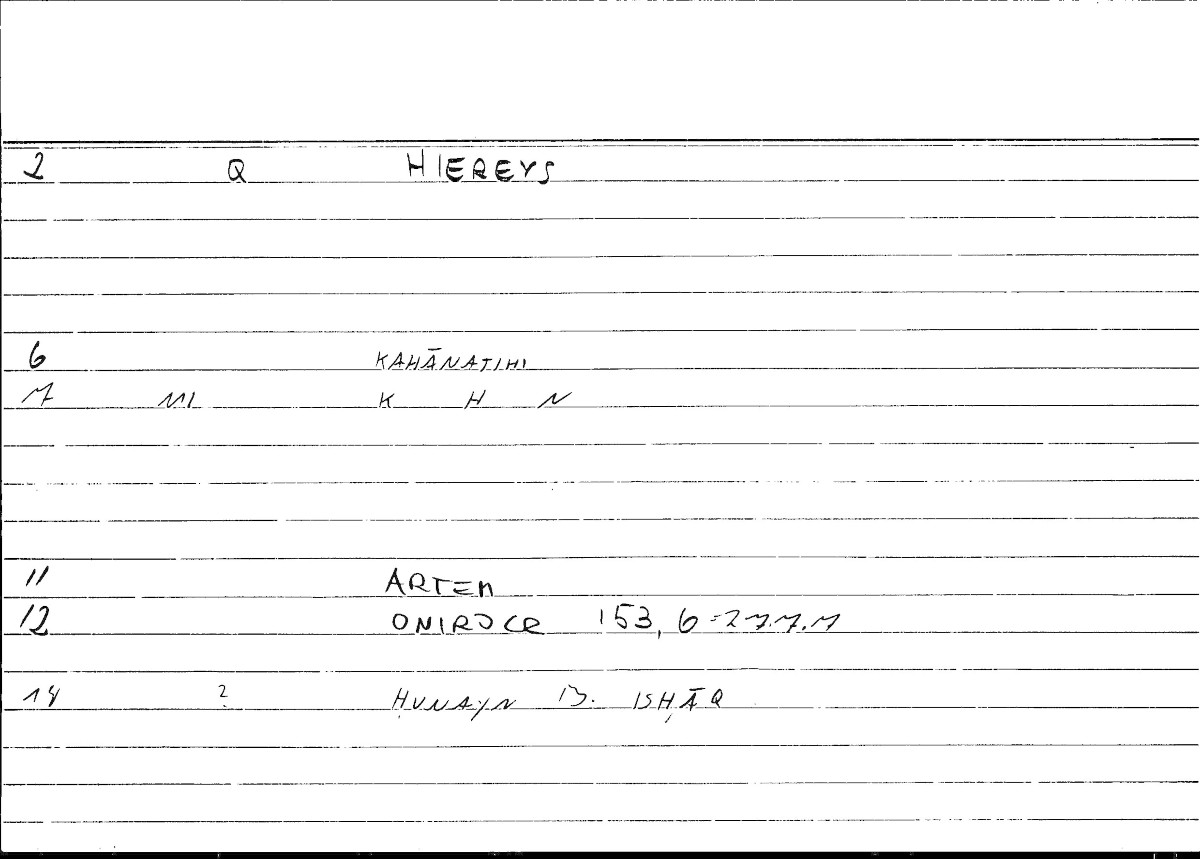 2 Q HIEREYS
6 KAHĀNATIHI
7 M1 K H N
11 ARTEM
12 ONIROCR 153, 6 = 277.1
14 ? ḤUNAYN B. ISḤĀQ